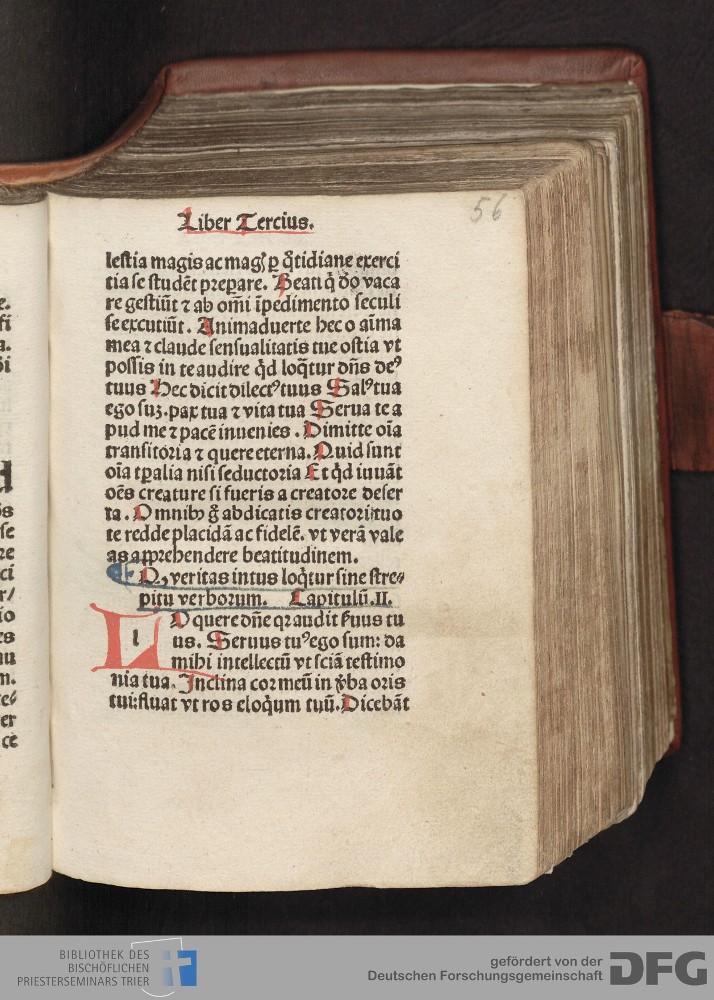 Liber Tercius.
56
lestia magis ac magꝭ ꝑ q̄tidiane exerci
tia se studēt preparare. Beati q̇ dō vaca
re gestiūt ⁊ ab om̄i īpedimento seculi
se excutiūt. Animaduerte hec o aīma
mea ⁊ claude sensualitatis tue ostia vt
possis in te audire qḋ loq̄tur dn̄s deꝰ
tuus Hec dicit dilectꝰ tuus Salꝰ tua
ego suꝫ. pax tua ⁊ vita tua Serua te a
pud me ⁊ pacē inuenies. Dimitte oīa
transitoria ⁊ quere eterna. Quid sunt
oīa tꝑalia nisi seductoria Et qḋ iuuāt
oēs creature si fueris a creatore deser
ta. Omnibꝫ g̊ abdicatis creatori tuo
te redde placidā ac fidelē. vt verā vale
as apprehendere beatitudinem.
Q, veritas intus loq̄tur sine stre⸗
pitu verborum. Capitulū. II.
LO quere dn̄e qꝛ audit ẜuus tu
l
us. Seruus tuꝰ ego sum: da
mihi intellectū vt sciā testimo
nia tua. Inclina cor meū in v̄ba oris
tui: fluat vt ros eloq̄um tuū. Dicebāt
e.
fi
a.
se
re
ci
r/
io
es
nu
m.
er
cē
BIBLIOTHEK DES
BISCHÖFLICHEN
PRIESTERSEMINARS TRIER
gefördert von der
Deutschen Forschungsgemeinschaft
DFG